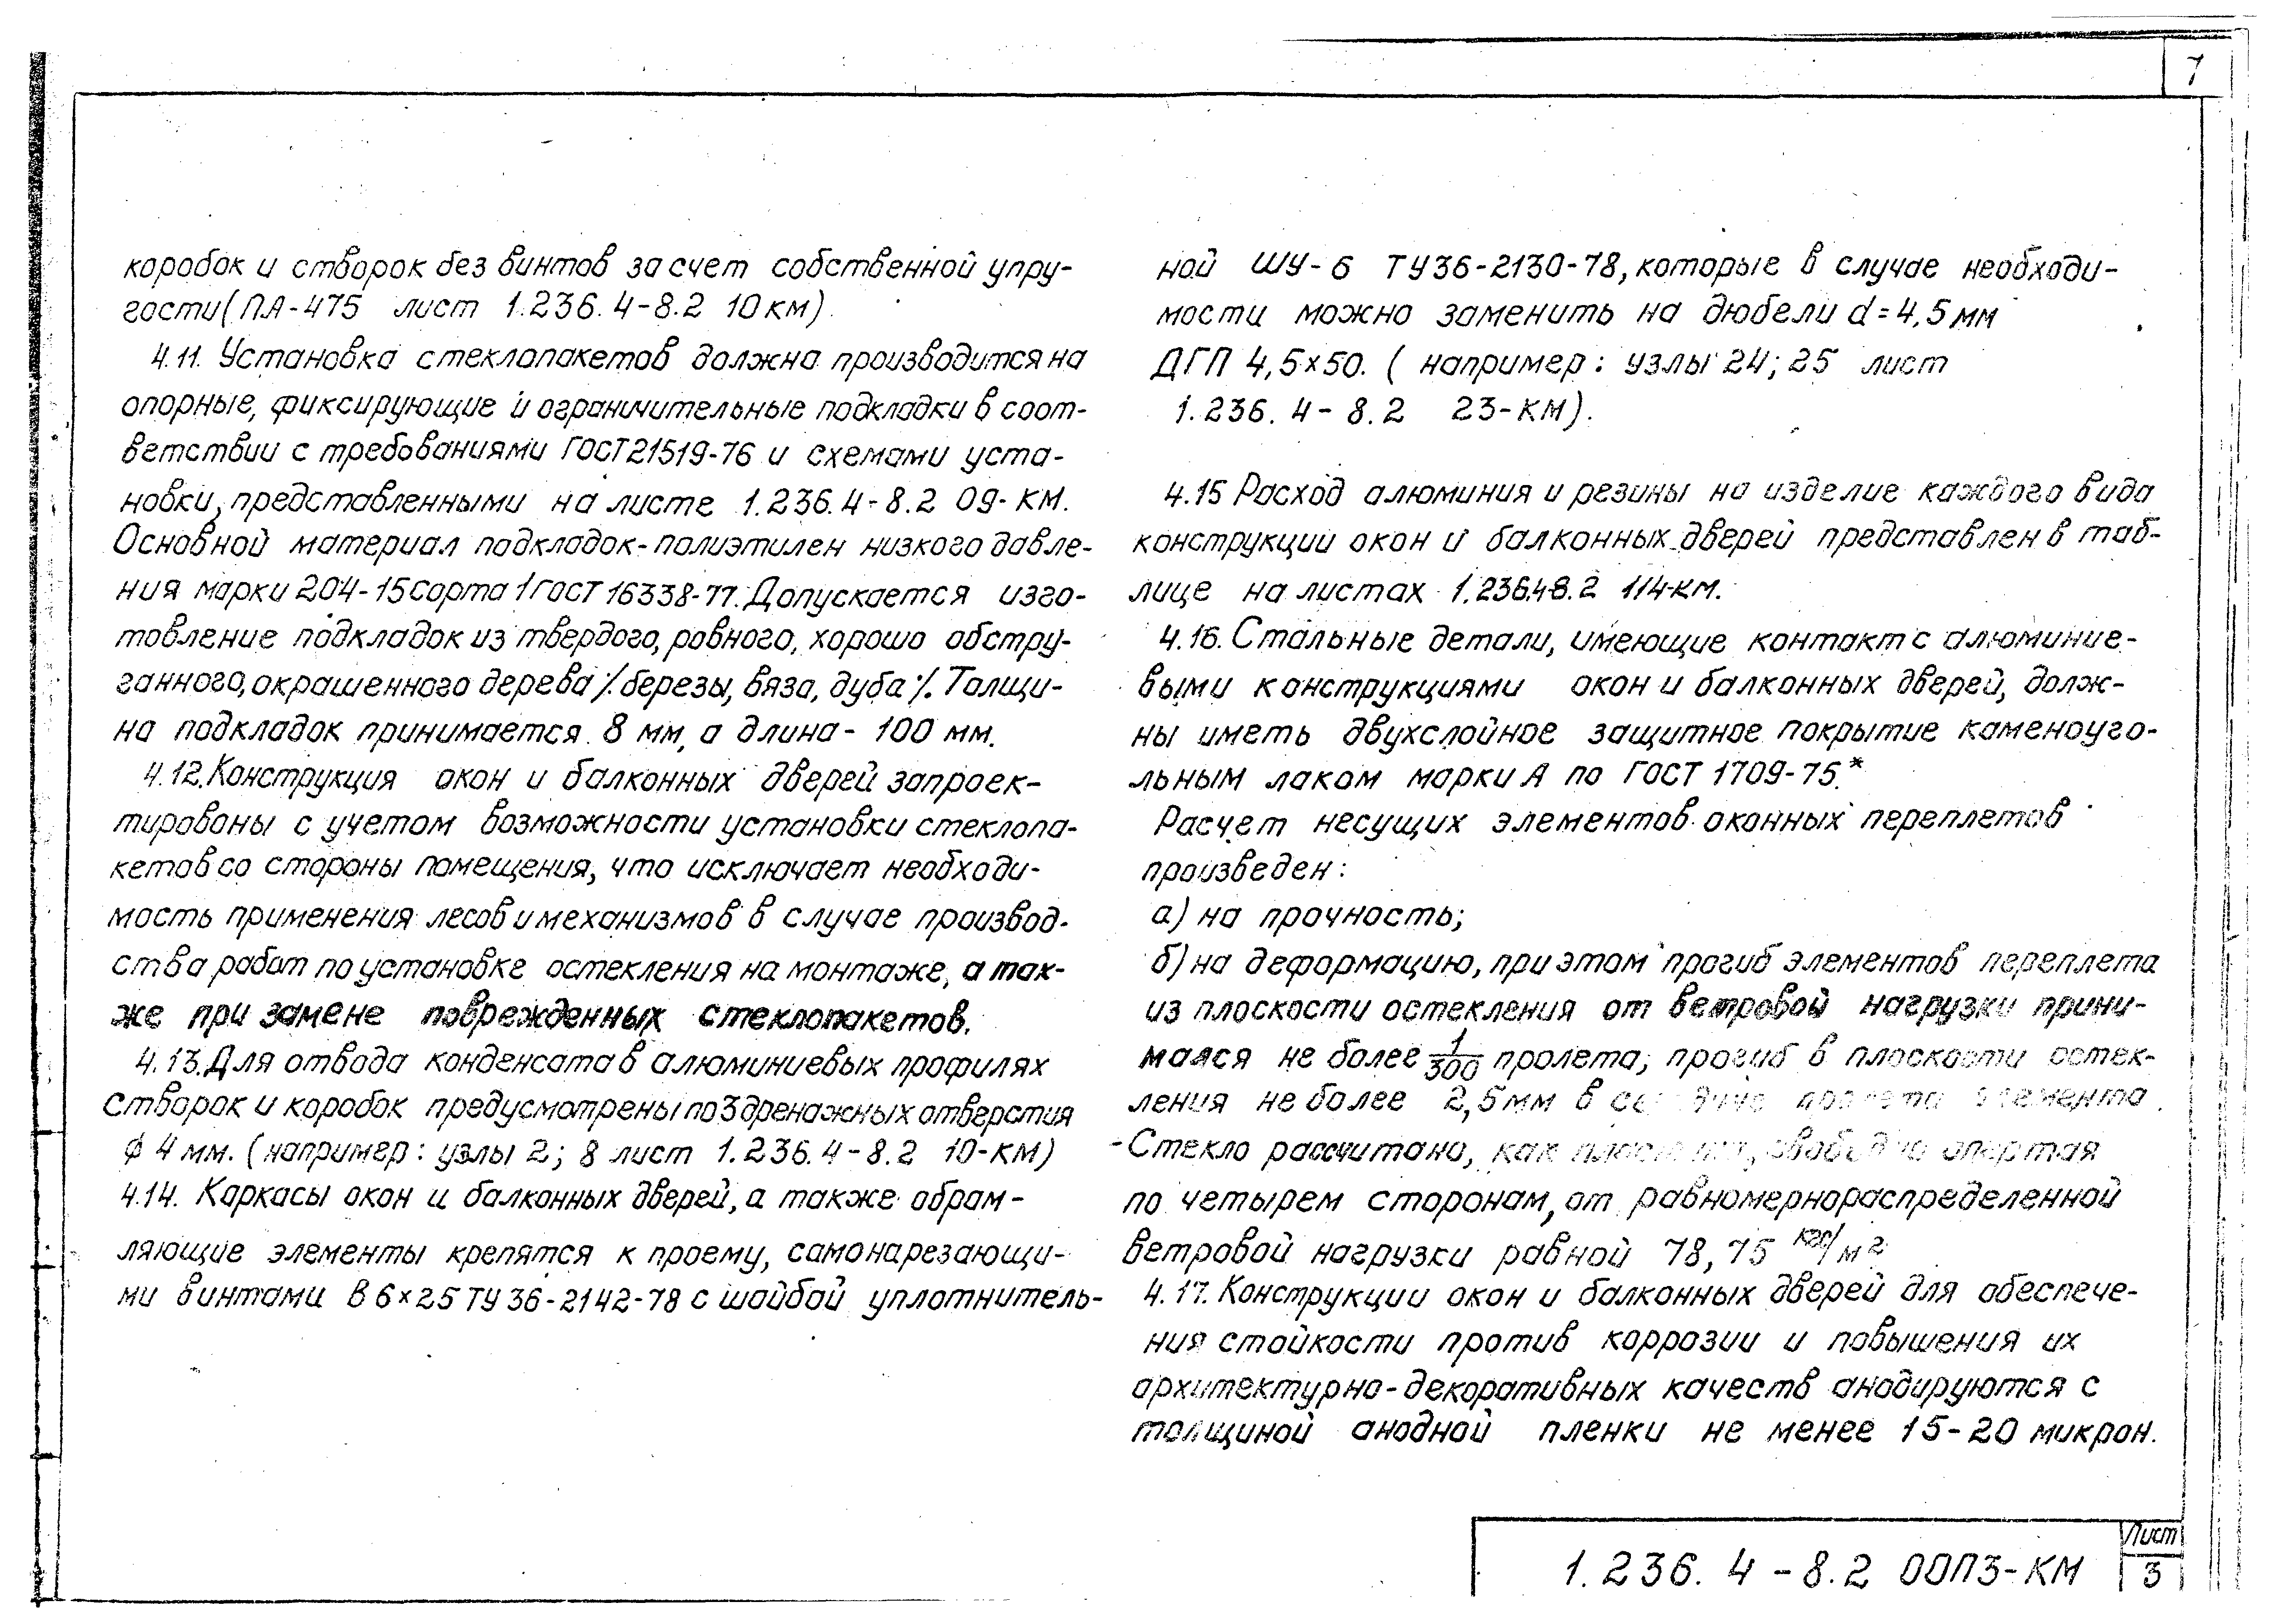 7
коробок и створок без винтов за счет собственной упру-
гости (ПА-475 лист 1.236.4-8.2 10 КМ).
4.11. Установка стеклопакетов должна производится на
опорные, фиксирующие и ограничительные подкладки в соот-
ветствии с требованиями ГОСТ 21519-76 и схемами уста-
новки, представленными на листе 1.236.4-8.2 09-КМ.
Основной материал подкладок-полиэтилен низкого давле-
ния марки 204-15 сорта 1 ГОСТ 16338-77. Допускается изго-
товление подкладок из твердого, ровного, хорошо обстру-
ганного, окрашенного дерева /березы, вяза, дуба/. Толщи-
на подкладок принимается 8 мм, а длина - 100 мм.
4.12. Конструкция окон и балконных дверей запроек-
тированы с учетом возможности установки стеклопа-
кетов со стороны помещения, что исключает необходи-
мость применения лесов и механизмов в случае производ-
ства работ по установке остекления на монтаже, а так-
же при замене поврежденных стеклопакетов.
4.13. Для отвода конденсата в алюминиевых профилях
створок и коробок предусмотрены по 3 дренажных отверстия
ф 4 мм. (например: узлы 2; 8 лист 1.236.4-8.2 10-КМ)
4.14. Каркасы окон и балконных дверей, а также обрам-
ляющие элементы крепятся к проему, самонарезающи-
ми винтами В 6×25 ТУ 36-2142-78 с шайбой уплотнитель-
ной ШУ-6 ТУ36-2130-78, которые в случае необходи-
мости можно заменить на дюбели d=4,5 мм
ДГП 4,5×50. (например: узлы 24; 25 лист
1.236.4-8.2 23-КМ).
4.15 Расход алюминия и резины на изделие каждого вида
конструкции окон и балконных дверей представлен в таб-
лице на листах 1.236.4-8.2 114-КМ.
4.16. Стальные детали, имеющие контакт с алюминие-
выми конструкциями окон и балконных дверей, долж-
ны иметь двухслойное защитное покрытие каменоуго-
льным лаком марки А по ГОСТ 1709-75.*
Расчет несущих элементов оконных переплетов
произведен:
а) на прочность;
б) на деформацию, при этом прогиб элементов переплета
из плоскости остекления от ветровой нагрузки прини-
мался не более 1/300 пролета; прогиб в плоскости остек-
ления не более 2,5 мм в середине пролета элемента.
Стекло рассчитано, как пластина, свободно опертая
по четырем сторонам, от равномернораспределенной
ветровой нагрузки равной 78,75 кгс/м²
4.17. Конструкции окон и балконных дверей для обеспече-
ния стойкости против коррозии и повышения их
архитектурно-декоративных качеств анодируются с
толщиной анодной пленки не менее 15-20 микрон.
1.236.4-8.2 00ПЗ-КМ
Лист
3